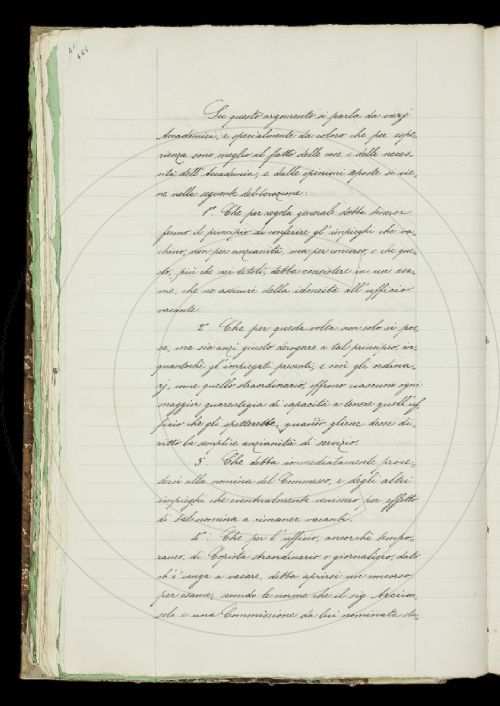 Su questo argomento si parla da varj
Accademici, e specialmente da coloro che per espe-
rienza sono meglio al fatto delle cose e delle neces-
sità dell'Accademia; e dalle opinioni esposte si vie-
ne nella seguente deliberazione:
1° Che per regola generale debba tenersi
fermo il principio di conferire gl'impieghi che va-
chino, non per anzianità, ma per concorso, e che que-
sto, più che nei titoli, debba consistere in un esa-
me, che ne assicuri della idoneità all'ufficio
vacante.
2° Che per questa volta non solo si pos-
sa, ma sia anzi giusto derogare a tal principio, in
quantochè gl'impiegati presenti, e così gli ordina-
rj, come quello straordinario, offrono ciascuno ogni
maggior guarentigia di capacità a tenere quell'uf-
ficio che gli spetterebbe, quando gliene desse di-
ritto la semplice anzianità di servizio.
3° Che debba immediatamente proce-
dersi alla nomina del Commesso, e degli altri
impieghi che eventualmente venissero per effetto
di tal nomina a rimaner vacanti.
4° Che per l'ufficio, ancorchè tempo-
raneo, di Copista straordinario o giornaliero, dato
ch'è venga a vacare, debba aprirsi un concorso
per esame, secondo le norme che il sig. Arcicon-
solo e una Commissione da lui nominata sta-